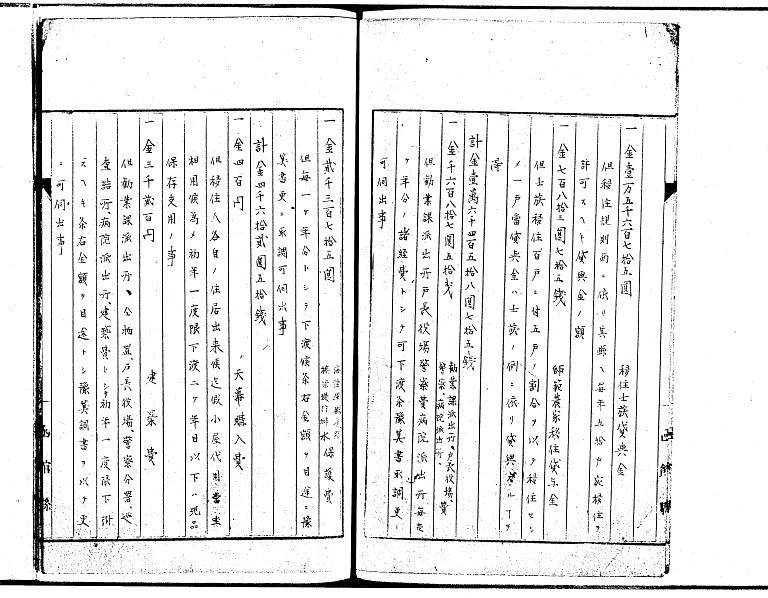 一金壹万五千六百七拾五圓　移住士族貸與金
但移住規則面ニ依リ其縣ヘ毎年五拾戸宛移住ヲ
許可スヘキ貸與金ノ額
一金七百八拾三圓七拾五錢　師範農家移住貸与金
但士族移住百戸ニ付五戸ノ割合ヲ以テ移住セシ
メ一戸當貸與金ハ士族ノ例ニ依リ貸與スルコヲ
得
計金壹萬六千四百五拾八圓七拾五錢
一金千六百八拾七圓五拾戋　勧業課派出所、戸長役場、警察、病院派出所、費
但勧業課派出所戸長役場警察費病院派出所毎壱
ヶ年分ノ諸経費トシテ可下渡条豫算書取調更ニ
可伺出事
一金貳千三百七拾五圓　水保護費
但毎一ヶ年分トシテ下渡候条右金額ヲ目途ニ豫
算書更ニ取調可伺出事
計金四千六拾貳圓五拾錢
一金四百円　天幕購入費
但移住人各自ノ住居出来候迄假小屋代用
相用候為メ初年一度限下渡ニケ年目以下ハ現品
保存支用ノ事
一金三千貳百円　建築費
但勧業課派出所、公物置、戸長役場、警察分署、巡
査詰所、病院派出所、建築費トシテ初年一度限下附
スヘキ条右金額ヲ目途トシ豫算調書ヲ以テ更
ニ可伺出事
函館縣